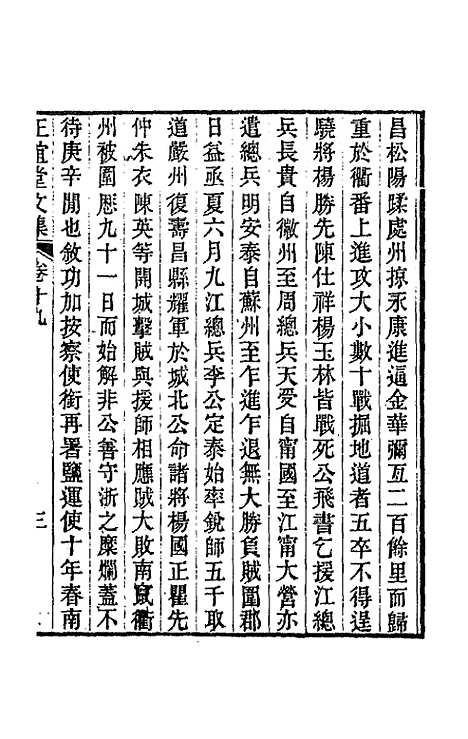 昌松陽蹂處州掠永康進逼金華彌亙二百餘里而歸
重於衢番上進攻大小數十戰掘地道者五卒不得逞
驍將楊勝先陳仕祥楊玉林皆戰死公飛書乞援江總
兵長貴自徽州至周總兵天受自甯國至江甯大營亦
遣總兵明安泰自蘇州至乍進乍退無大勝負賊圍郡
日益亟夏六月九江總兵李公定泰始率銳師五千取
道嚴州復壽昌縣耀軍於城北公命諸將楊國正瞿先
仲朱衣陳英等開城擊賊與援師相應賊大敗南竄衢
州被圍歷九十一日而始解非公善守浙之糜爛蓋不
待庚辛閒也敘功加按察使銜再署鹽運使十年春南
正誼堂文集 卷十九 三